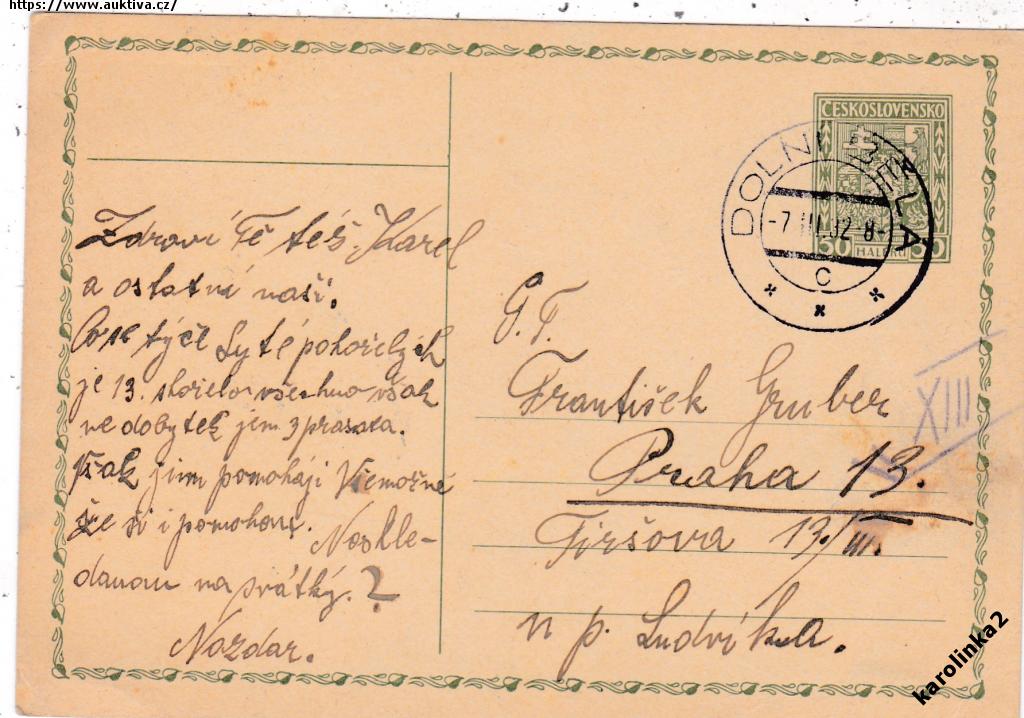 https://www.auktiva.cz/
ČESKOSLOVENSKO
50 HALÉŘŮ 50
DOLNÍ BĚLÁ
-7.III.32-8-
C
Zdraví Tě též Karel
a ostatní naši.
Co se týče pohořelých
je 13. shořelo všechno však
ne dobytek jem 3 prasata.
Však jim pomohají Všemožně
že si i pomohou. Neshle-
danou na svátky.?
Nazdar.
G. T.
František Gruber
Praha 13.
Tiršova 13./III.
n p. Ludvíka.
XIII
karolinka2